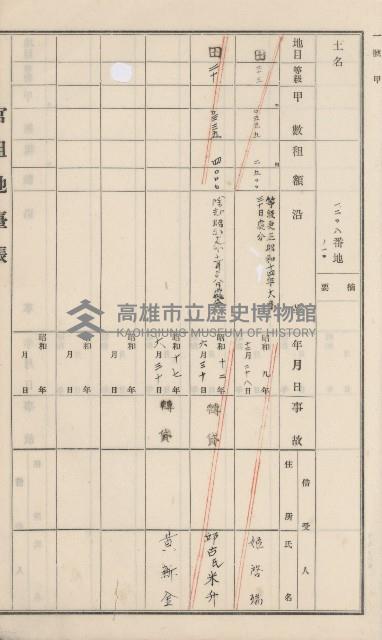 一號甲
土名
一二〇八番地
ノ一〇
摘要
地目
等級
甲數
租額
沿
年月日
事故
借受人
住所
氏名
田
二十三
二.九〇〇
等級更正昭和十四年六月
三十日處分
昭和九年
十二月二十八日
姬啓瑞
田
二十
四〇〇七
昭和十二年
六月三十日
轉貸
邱古氏米升
昭和十七年
六月三十日
轉貸
黃新金
昭和年
月日
昭和年
月日
昭和年
月日
官租地臺帳
高雄市立歷史博物館
KAOHSIUNG MUSEUM OF HISTORY